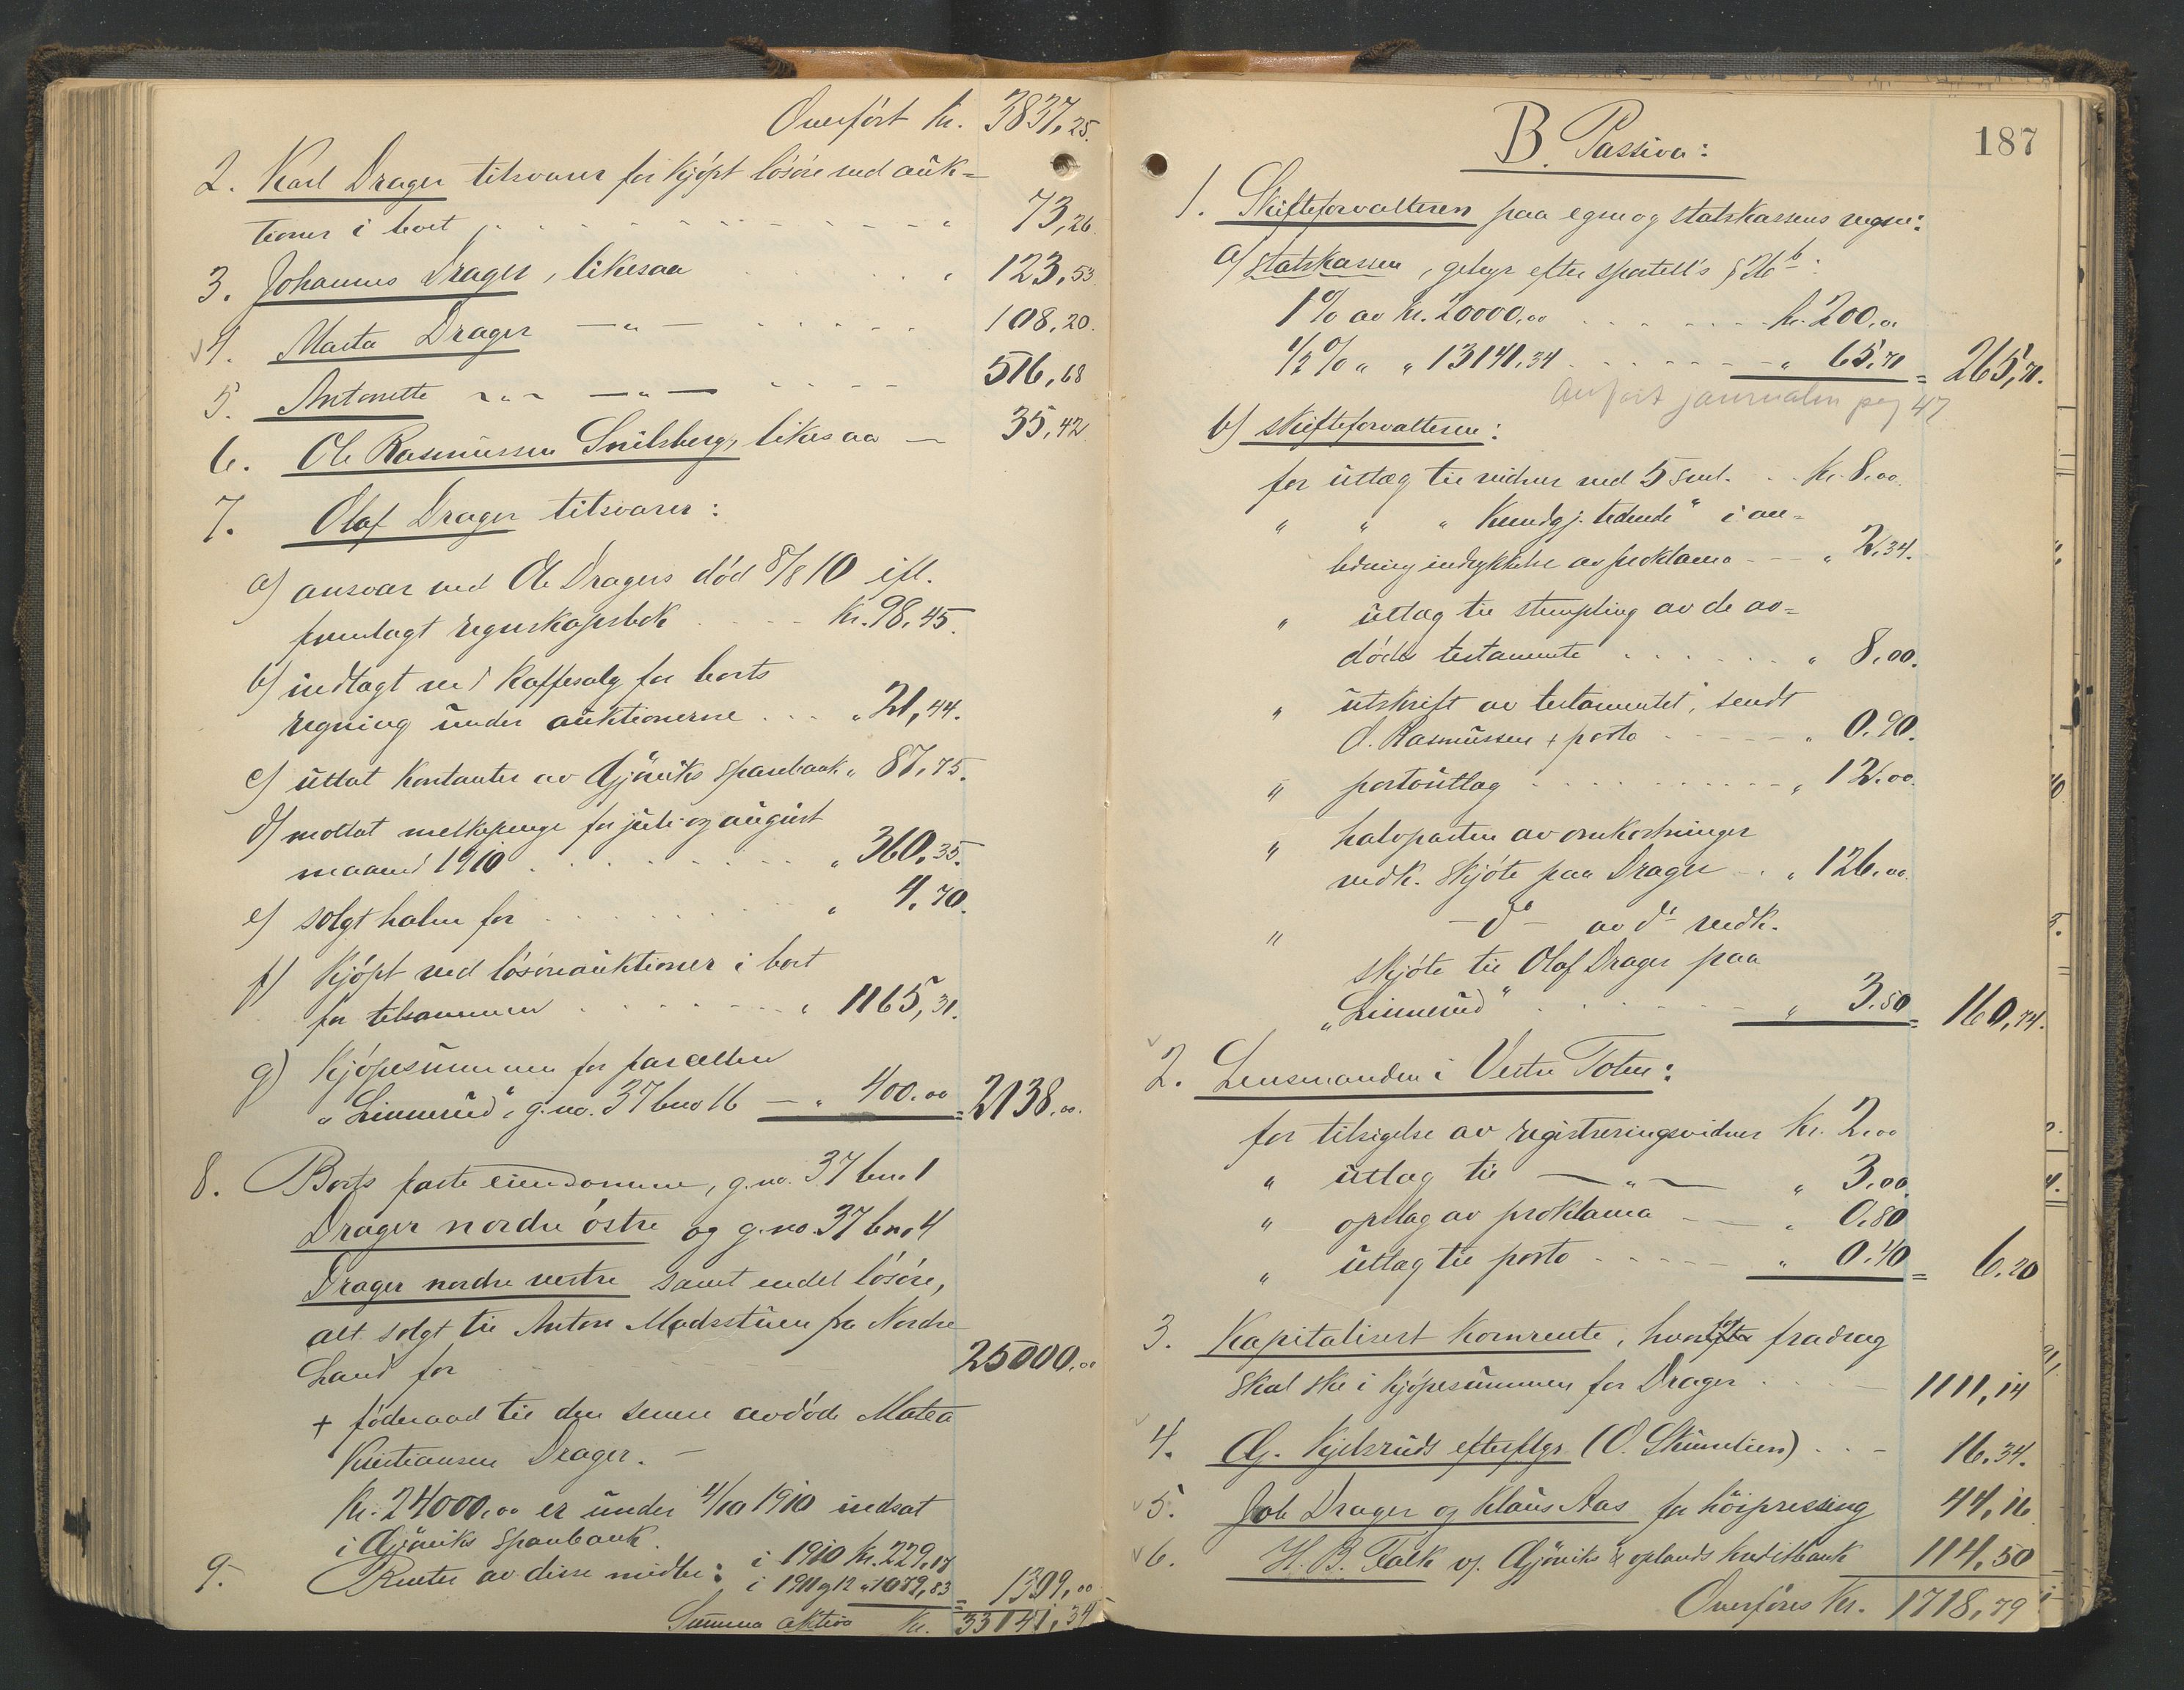 Overført kr. 3837,25.
2. Karl Drager tilsvarer for kjøpt løsøre ved auk=
tioner i boet . . . " 73,26.
3. Johannes Drager, likesaa . . . " 123,53.
4. Marta Drager — " — . . . 108,20.
5. Antonette " — " — . . . 516,68
6. Ole Rasmussen Snilsberg, likesaa — 35,42
7. Olaf Drager tilsvarer:
a) ansvar ved Ole Dragers død 8/8 10 ifl.
fremlagt regnskapsbok . . . kr. 98,45.
b) indtægt ved kaffesalg for boets
regning under auktionerne . . . " 21,44.
c) uttat kontanter av Gjøviks sparebank " 87,75.
d) mottat melkepenge for juli og august
maaned 1910 . . . " 360,35.
e) solgt halm for . . . " 4,70.
f) kjøpt ved løsøreauktioner i boet
for tilsammen . . . " 1165,31.
g) kjøpesummen for parcellen
"Linnerud", g.no. 37 bno 16 — " 400.00 = 2138.00.
8. Boets faste eiendomme, g.no. 37 bno. 1
Drager nordre østre og g.no. 37 bno. 4
Drager nordre vestre samt endel løsøre,
alt solgt til Anton Madsstuen fra Nordre
Land for 25000.00
+ føderaad til den senere avdøde Matea
Kristiansen Drager. —
Kr. 24000.00 er under 4/10 1910 indsat
i Gjøviks sparebank.
9. Renter av disse midler: i 1910 kr. 229,17
i 1911 og 12 " 1079,83 = 1309,00
Summa aktiva kr. 33141,34
187
B. Passiva:
1. Skifteforvalteren paa egne og statskassens vegne:
a) statskassen, gebyr efter sportell's § 26 b:
1 % av kr. 20000,00 . . . kr. 200,00
1/2 % " " 13141.34 . . . " 65,70 = 265,70.
Anført journalen pag 47
b) skifteforvalteren:
for utlæg til vidner ved 5 saml. . . kr. 8,00.
" " " Kundgj. tidende" i an=
ledning indrykkelse av proklama — " 2.34.
" utlæg til stempling av de av=
dødes testamente . . . " 8,00.
" utskrift av testamentet, sendt
O. Rasmussen + porto . . . " 0.90.
" portoutlæg . . . " 12.00.
" halvparten av omkostninger
vedk. skjøte paa Drager . " 126.00.
" — do — av do vedk.
skjøte til Olaf Drager paa
"Linnerud" . . . " 3.50 = 160,74.
2. Lensmanden i Vestre Toten:
for tilsigelse av registreringsvidner kr. 2.00
" utlæg til — " — " 3,00
" opslag av proklama — " 0.80
" utlæg til porto . . . " 0.40 = 6.20
3. Kapitalisert kornrente, hvorfor fradrag
skal ske i kjøpesummen for Drager . . . 1111,14
4. G. Kjelsruds efterflgr. (O. Skumlien) . . — 16.34.
5. Joh Drager og Klaus Aas for høipressing 44,16
6. H. B. Falk of. Gjøviks & oplands kreditbank 114,50
Overføres Kr. 1718,79